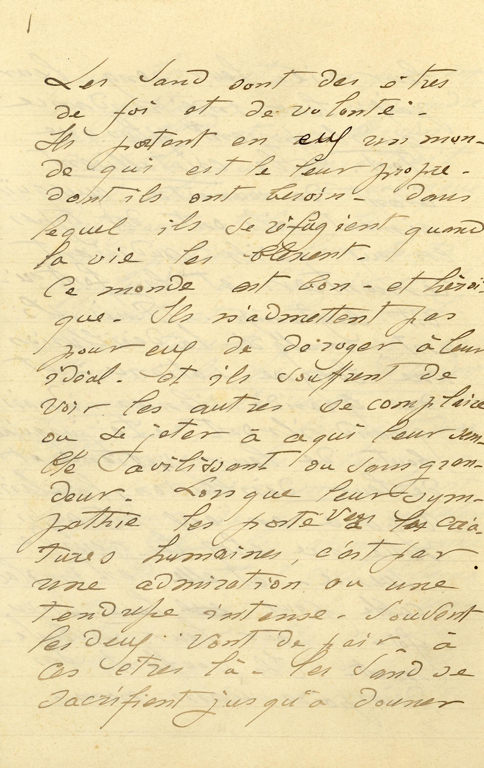 1
Les Sand sont des êtres
de foi et de volonté.
Ils portent en eux un mon-
de qui est le leur propre -
dont ils ont besoin - dans
lequel ils se réfugient quand
la vie les blessent.
Ce monde est bon - et héroï-
que - Ils n'admettent pas
pour eux de déroger à leur
idéal - et ils souffrent de
voir les autres se complaire
ou se jeter à a qui leur sem-
ble avilissant ou sans gran-
deur. Lorsque leur sym-
pathie les porte vers les créa-
tures humaines, c'est par
une admiration ou une
tendresse intense - Souvent
les deux vont de pair - à
ces êtres là - les Sand se
sacrifient jusqu'à donner